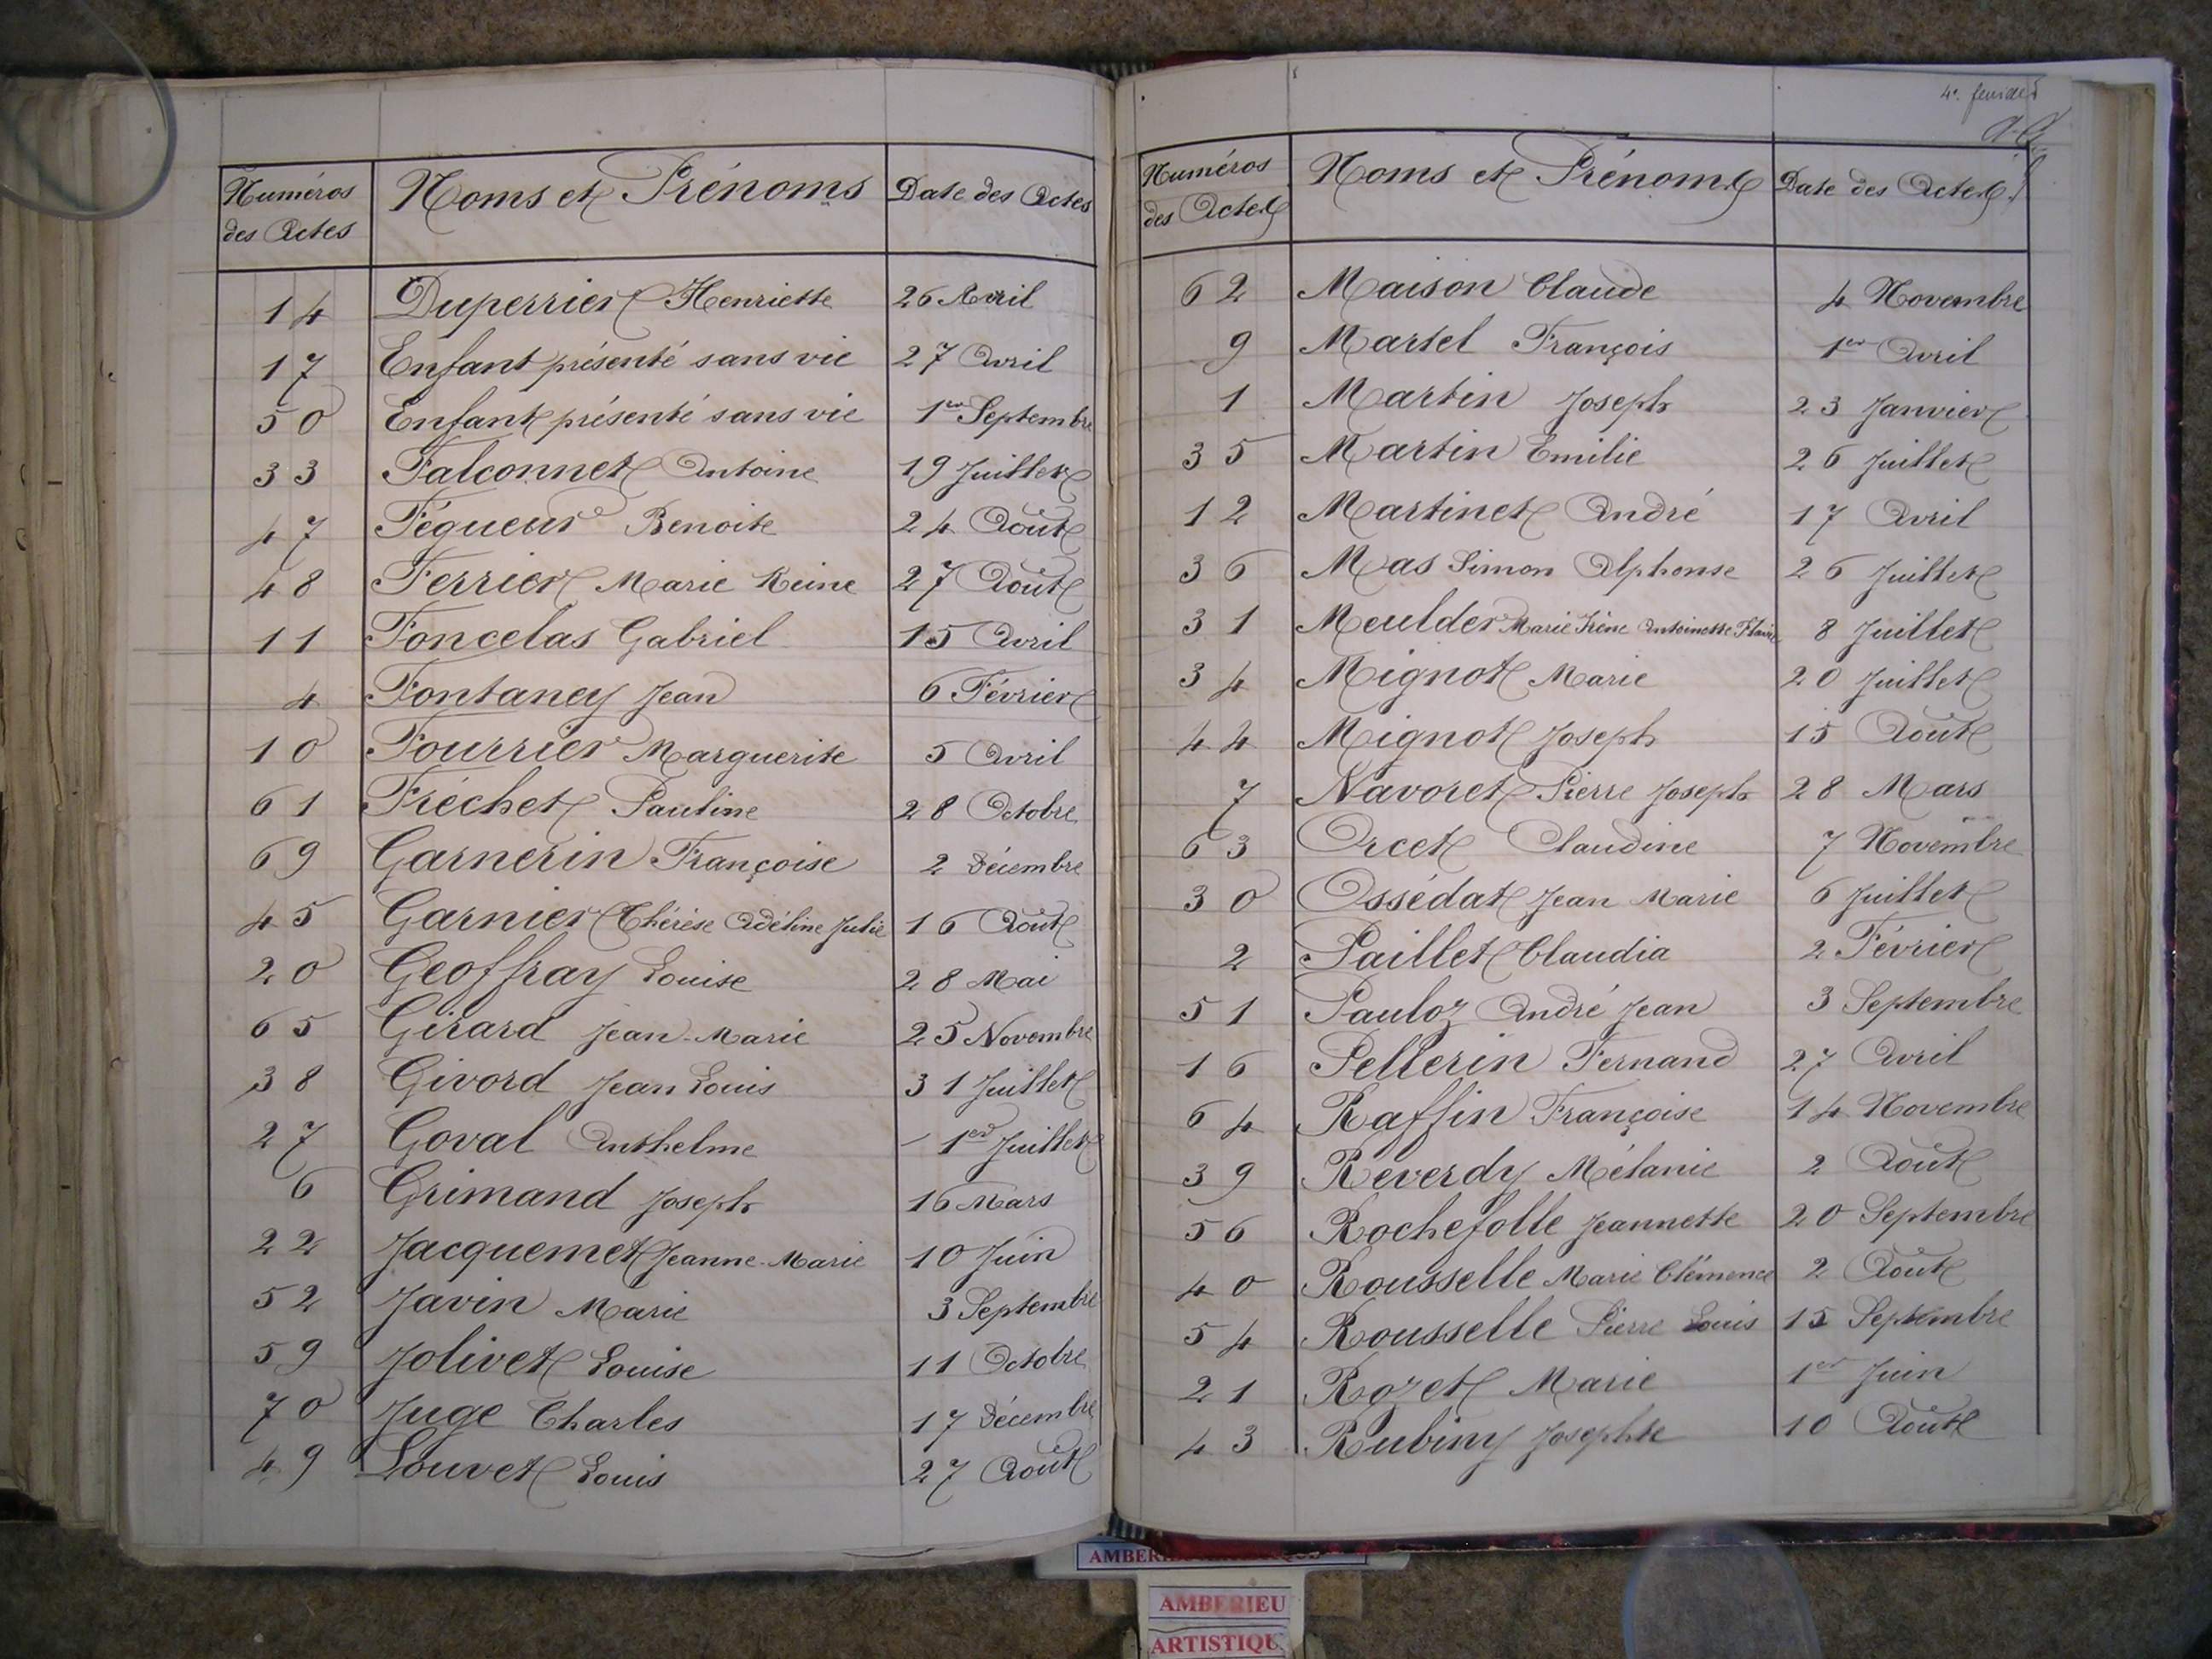 Numéros des Actes Noms et Prénoms Date des Actes
14 Duperrier Henriette 26 Avril
17 Enfant présenté sans vie 27 Avril
50 Enfant présenté sans vie 1er Septembre
33 Falconnet Antoine 19 Juillet
47 Fégueur Benoite 24 Août
48 Ferrier Marie Reine 27 Août
11 Foncelas Gabriel 15 Avril
4 Fontaney Jean 6 Février
10 Fourrier Marguerite 5 Avril
61 Fréchet Pauline 28 Octobre
69 Garnerin Françoise 2 Décembre
45 Garnier Thérèse Adéline Julie 16 Août
20 Geoffray Louise 28 Mai
65 Girard Jean-Marie 25 Novembre
38 Givord Jean Louis 31 Juillet
27 Goval Anthelme 1er Juillet
6 Grimand Joseph 16 Mars
22 Jacquemet Jeanne-Marie 10 Juin
52 Javin Marie 3 Septembre
59 Jolivet Louise 11 Octobre
70 Juge Charles 17 Décembre
49 Louvet Louis 27 Août
4e.
Numéros des Actes Noms et Prénoms Date des Actes
62 Maison Claude 4 Novembre
9 Martel François 1er Avril
1 Martin Joseph 23 Janvier
35 Martin Emilie 26 Juillet
12 Martinet André 17 Avril
36 Mas Simon Alphonse 26 Juillet
31 Meulder Marie Irène Antoinette 8 Juillet
34 Mignot Marie 20 Juillet
44 Mignot Joseph 15 Août
7 Navoret Pierre Joseph 28 Mars
63 Orcet Claudine 7 Novembre
30 Ossédat Jean Marie 6 Juillet
2 Paillet Claudia 2 Février
51 Pauloz André Jean 3 Septembre
16 Pellerin Fernand 27 Avril
64 Raffin Françoise 14 Novembre
39 Reverdy Mélanie 2 Août
56 Rochefolle Jeannette 20 Septembre
40 Rousselle Marie Clémence 2 Août
54 Rousselle Pierre Louis 15 Septembre
21 Rozet Marie 1er Juin
43 Rubiny Josephte 10 Août
AMBERIEU
ARTISTIQU